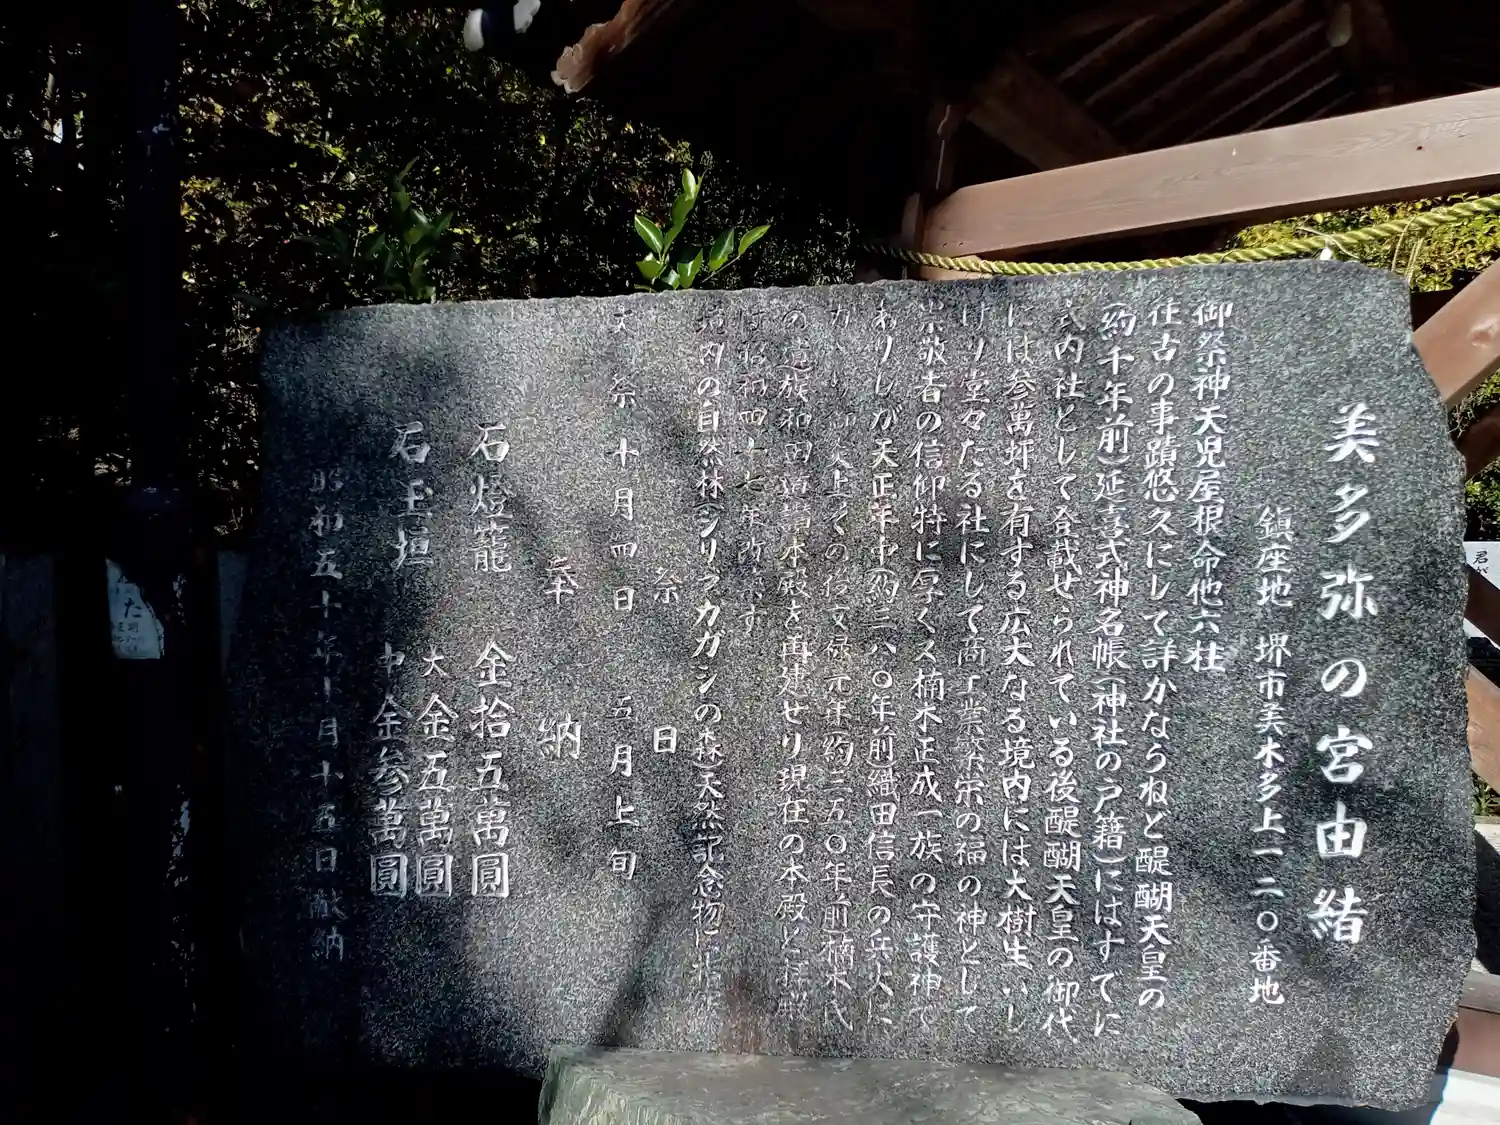 美多弥の宮由緒
鎮座地 堺市美木多上一二〇番地
御祭神天児屋根命他六柱
往古の事蹟悠久にして詳かならねど醍醐天皇の
(約千年前)延喜式神名帳(神社の戸籍)にはすでに
式内社として登載せられている後醍醐天皇の御代
には参萬坪を有する広大なる境内には大樹生いし
げり堂々たる社にして商工業繁栄の福の神として
崇敬者の信仰特に厚く又楠木正成一族の守護神で
ありしが天正年中(約三八〇年前)織田信長の兵火に
炎上その後文禄元年(約三五〇年前)楠木氏
の遺族和田道讃本殿を再建せり現在の本殿と拝殿
は昭和四十七年改
境内の自然林(シリブカガシの森)天然記念物に指定
祭 日
大祭 十月四日 五月上旬
奉 納
石燈籠 金拾五萬圓
石玉垣 大金五萬圓
中金参萬圓
昭和五十年十月十五日献納
た
君が